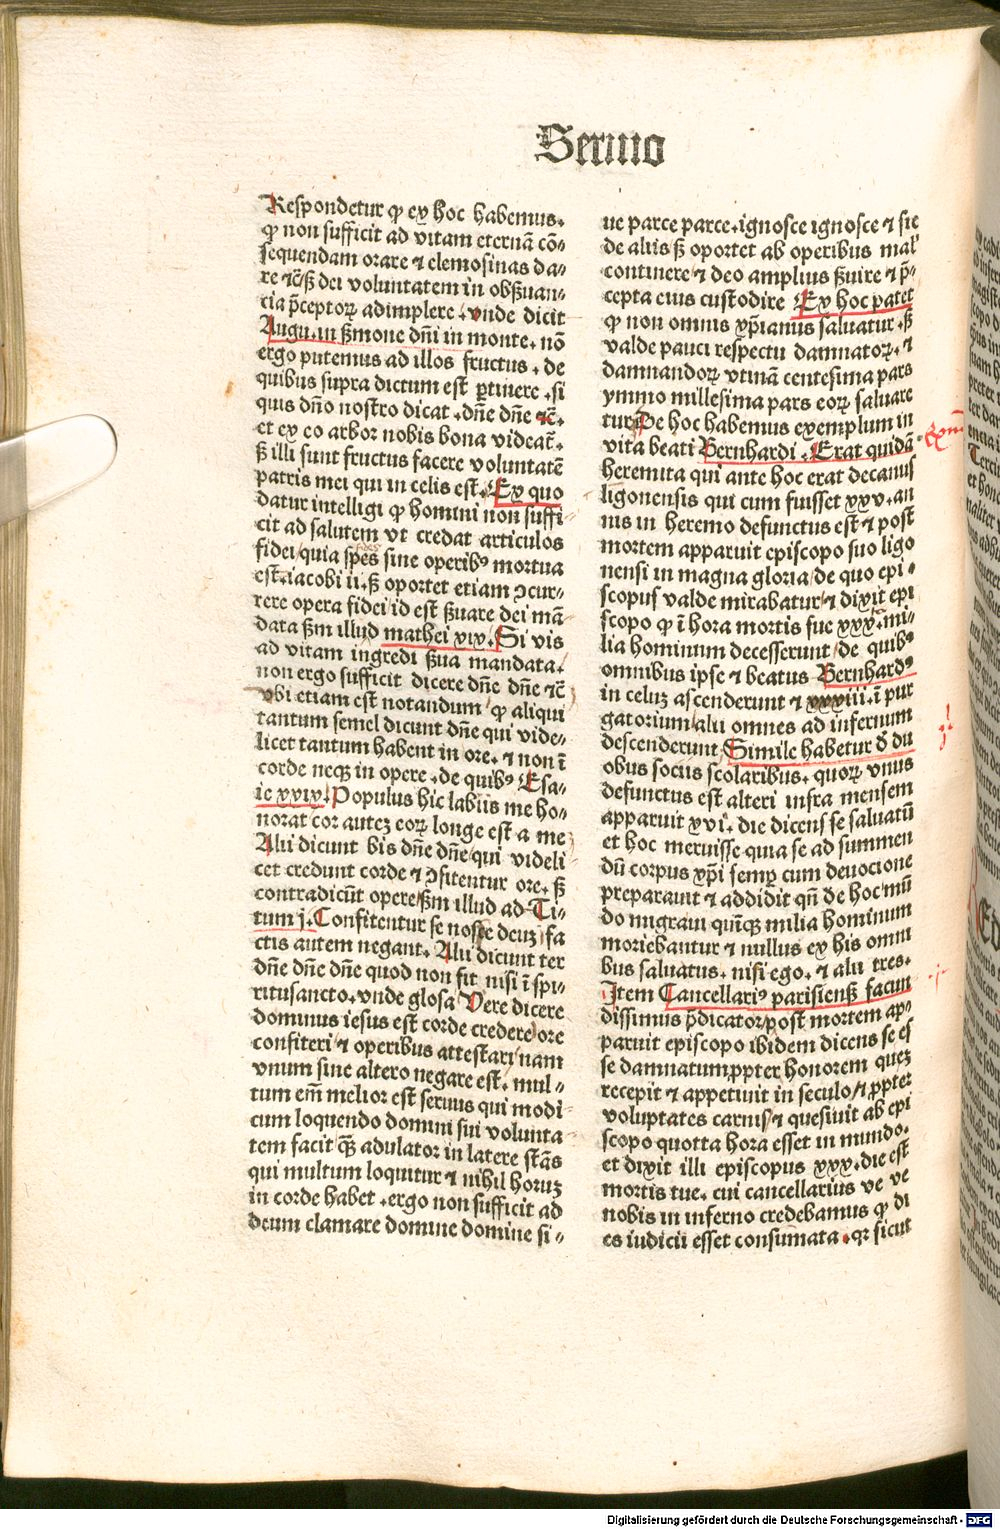 Sermo
Respondetur ꝙ ex hoc habemus.
ꝙ non sufficit ad vitam eternā cō⸗
sequendam orare ⁊ elemosinas da⸗
re ⁊c̄. sꝫ dei voluntatem in obẜuan⸗
cia p̄ceptoꝝ adimplere. vnde dicit
Augu. in ẜmone dn̄i in monte. nō
ergo putemus ad illos fructus. de
quibus supra dictum est ꝑtinere. si
quis dn̄o nostro dicat. dn̄e dn̄e ⁊c̄.
et ex eo arbor nobis bona videat̄.
sꝫ illi sunt fructus facere voluntatē
patris mei qui in celis est. Ex quo
datur intelligi ꝙ homini non suffi⸗
cit ad salutem vt credat articulos
fidei/ quia spes sine operibꝰ mortua
fides
est. iacobi ii. sꝫ oportet etiam ↄcur⸗
rere opera fidei/ id est ẜuare dei mā⸗
data ẜm illud mathei xix. Si vis
ad vitam ingredi ẜua mandata.
non ergo sufficit dicere dn̄e dn̄e ⁊c̄
vbi etiam est notandum ꝙ aliqui
tantum semel dicunt dn̄e qui vide⸗
licet tantum habent in ore. ⁊ non ī
corde neqꝫ in opere. de quibꝰ Esa⸗
ie xxix. Populus hic labiis me ho⸗
norat cor autez eoꝝ longe est a me
Alii dicunt bis dn̄e dn̄e/ qui videli
cet credunt corde ⁊ ↄfitentur ore. sꝫ
contradicūt opere/ ẜm illud ad Ti⸗
tum j. Confitentur se nosse deuz/ fa
ctis autem negant. Alii dicunt ter
dn̄e dn̄e dn̄e quod non fit nisi ī spi⸗
ritusancto. vnde glosa Vere dicere
dominus iesus est corde credere/ ore
confiteri/ ⁊ operibus attestari/ nam
vnum sine altero negare est. mul⸗
tum em̄ melior est seruus qui modi
cum loquendo domini sui volunta⸗
tem facit qꝫ adulator in latere stās
qui multum loquitur ⁊ nihil horuz
in corde habet. ergo non sufficit ad
deum clamare domine domine si⸗
ue parce parce. ignosce ignosce ⁊ sic
de aliis sꝫ oportet ab operibus mal'
continere ⁊ deo amplius ẜuire ⁊ p̄⸗
cepta eius custodire Ex hoc patet
ꝙ non omnis xp̄ianus saluatur. sꝫ
valde pauci respectu damnatoꝝ. ⁊
damnandoꝝ vtinā centesima pars
ymmo millesima pars eoꝝ saluare
tur. De hoc habemus exemplum in
vita beati Bernhardi. Erat quidā
heremita qui ante hoc erat decanus
ligonensis qui cum fuisset xxv. an
nis in heremo defunctus est ⁊ post
mortem apparuit episcopo suo ligo
nensi in magna gloria/ de quo epi⸗
scopus valde mirabatur/ ⁊ dixit epi
scopo ꝙ ī hora mortis sue xxx. mi⸗
lia hominum decesserunt/ de quibꝰ
omnibus ipse ⁊ beatus Bernhardꝰ
in celuz ascenderunt ⁊ xxxiii. ī pur
gatorium/ alii omnes ad infernum
descenderunt Simile habetur đ du
obus sociis scolaribus. quoꝝ vnus
defunctus est alteri infra mensem
apparuit xvi. die dicens se saluatū
et hoc meruisse quia se ad summen
dū corpus xp̄i semꝑ cum deuocione
preparauit ⁊ addidit qn̄ de hoc mū
do migraui quīqꝫ milia hominum
moriebantur ⁊ nullus ex his omni
bus saluatus. nisi ego. ⁊ alii tres.
Item Cancellariꝰ parisienẜ facun
dissimus p̄dicator/ post mortem ap⸗
paruit episcopo ibidem dicens se es
se damnatum ꝓpter honorem quez
recepit ⁊ appetiuit in seculo/ ⁊ ꝓpter
voluptates carnis/ ⁊ quesiuit ab epi
scopo quotta hora esset in mundo.
et dixit illi episcopus xxx. die est
mortis tue. cui cancellarius ve ve
nobis in inferno credebamus ꝙ di
es iudicii esset consumata. qꝛ sicut
Digitalisierung gefördert durch die Deutsche Forschungsgemeinschaft - DFG